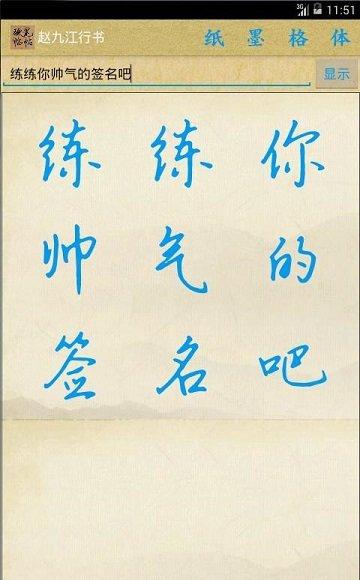 3G 11:51
赵九江行书 纸 墨 格 体
练练你帅气的签名吧 显示
练 练 你
帅 气 的
签 名 吧